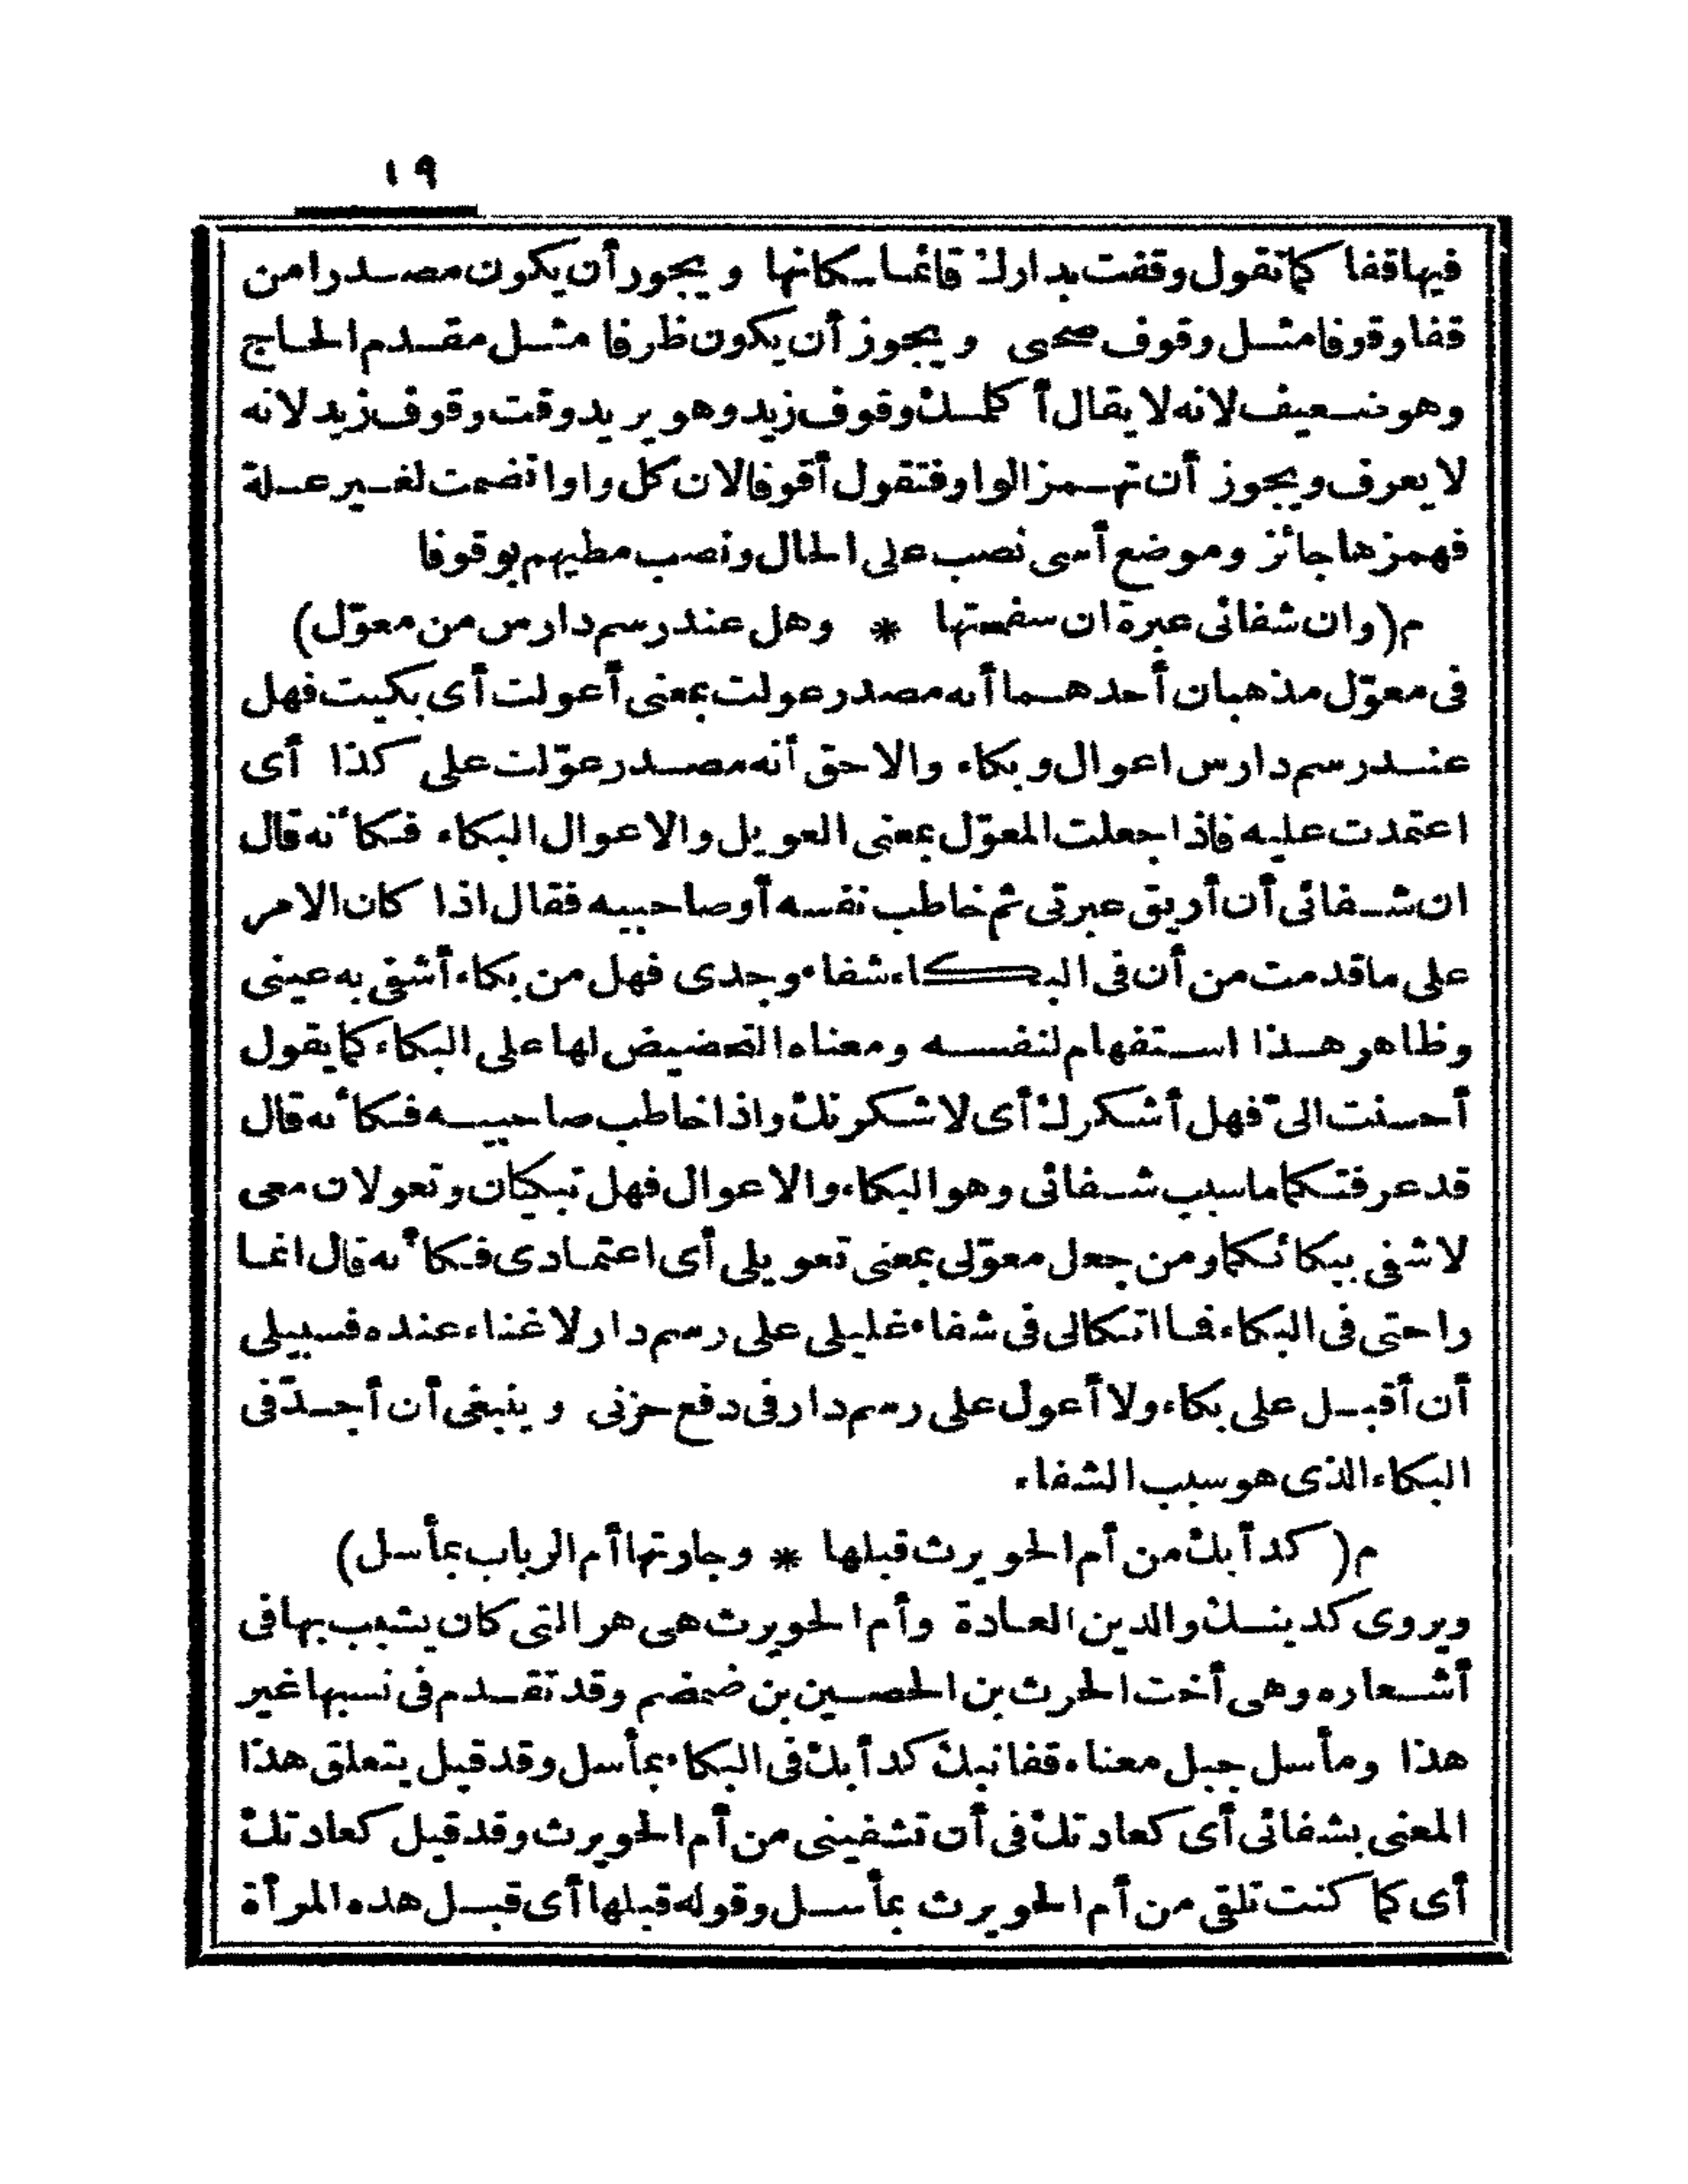 ١٩
فيها قفا كما تقول وقفت بدارك قائما سكانها ويجوز أن يكون مصدرا من
قفا وقوفا مثل وقوف صحبى ويجوز أن يكون ظرفا مثل مقدم الحاج
وهو ضعيف لانه لا يقال أكلمك وقوف زيد وهو يريد وقت وقوف زيد لانه
لا يعرف ويجوز أن تهمز الواو فتقول أقوفا لان كل واو انضمت لغير علة
فهمزها جائز وموضع أسى نصب على الحال ونصب مطيهم بوقوفا
م (وان شفائى عبرة ان سفحتها * وهل عند رسم دارس من معوّل)
فى معوّل مذهبان أحدهما أنه مصدر عولت بمعنى أعولت أى بكيت فهل
عند رسم دارس اعوال وبكاء والاحق أنه مصدر عوّلت على كذا أى
اعتمدت عليه فاذا جعلت المعوّل بمعنى العويل والاعوال البكاء فكأنه قال
ان شفائى أن أريق عبرتى ثم خاطب نفسه أو صاحبيه فقال اذا كان الامر
على ما قدمت من أن فى البكاء شفاء وجدى فهل من بكاء أشفى به عينى
وظاهر هذا استفهام لنفسه ومعناه التحضيض لها على البكاء كما يقول
أحسنت الىّ فهل أشكرك أى لاشكرنك واذا خاطب صاحبيه فكأنه قال
قد عرفتكما ما سبب شفائى وهو البكاء والاعوال فهل تبكيان وتعولان معى
لاشفى ببكائكما ومن جعل معوّلى بمعنى تعويلى أى اعتمادى فكأنه قال انما
راحتى فى البكاء فما اتكالى فى شفاء غليلى على رسم دار لا غناء عنده فسبيلى
أن أقبل على بكاء ولا أعول على رسم دار فى دفع حزنى وينبغى أن أجدّ فى
البكاء الذى هو سبب الشفاء
م (كدأبك من أم الحويرث قبلها * وجارتها أم الرباب بمأسل)
ويروى كدينك والدين العادة وأم الحويرث هى هر التى كان يشبب بها فى
أشعاره وهى أخت الحرث بن الحصين بن ضمضم وقد تقدم فى نسبها غير
هذا ومأسل جبل معناه قفا نبك كدأبك فى البكاء بمأسل وقد قيل يتعلق هذا
المعنى بشفائى أى كعادتك فى أن تشفينى من أم الحويرث وقد قيل كعادتك
أى كما كنت تلقى من أم الحويرث بمأسل وقوله قبلها أى قبل هذه المرأة